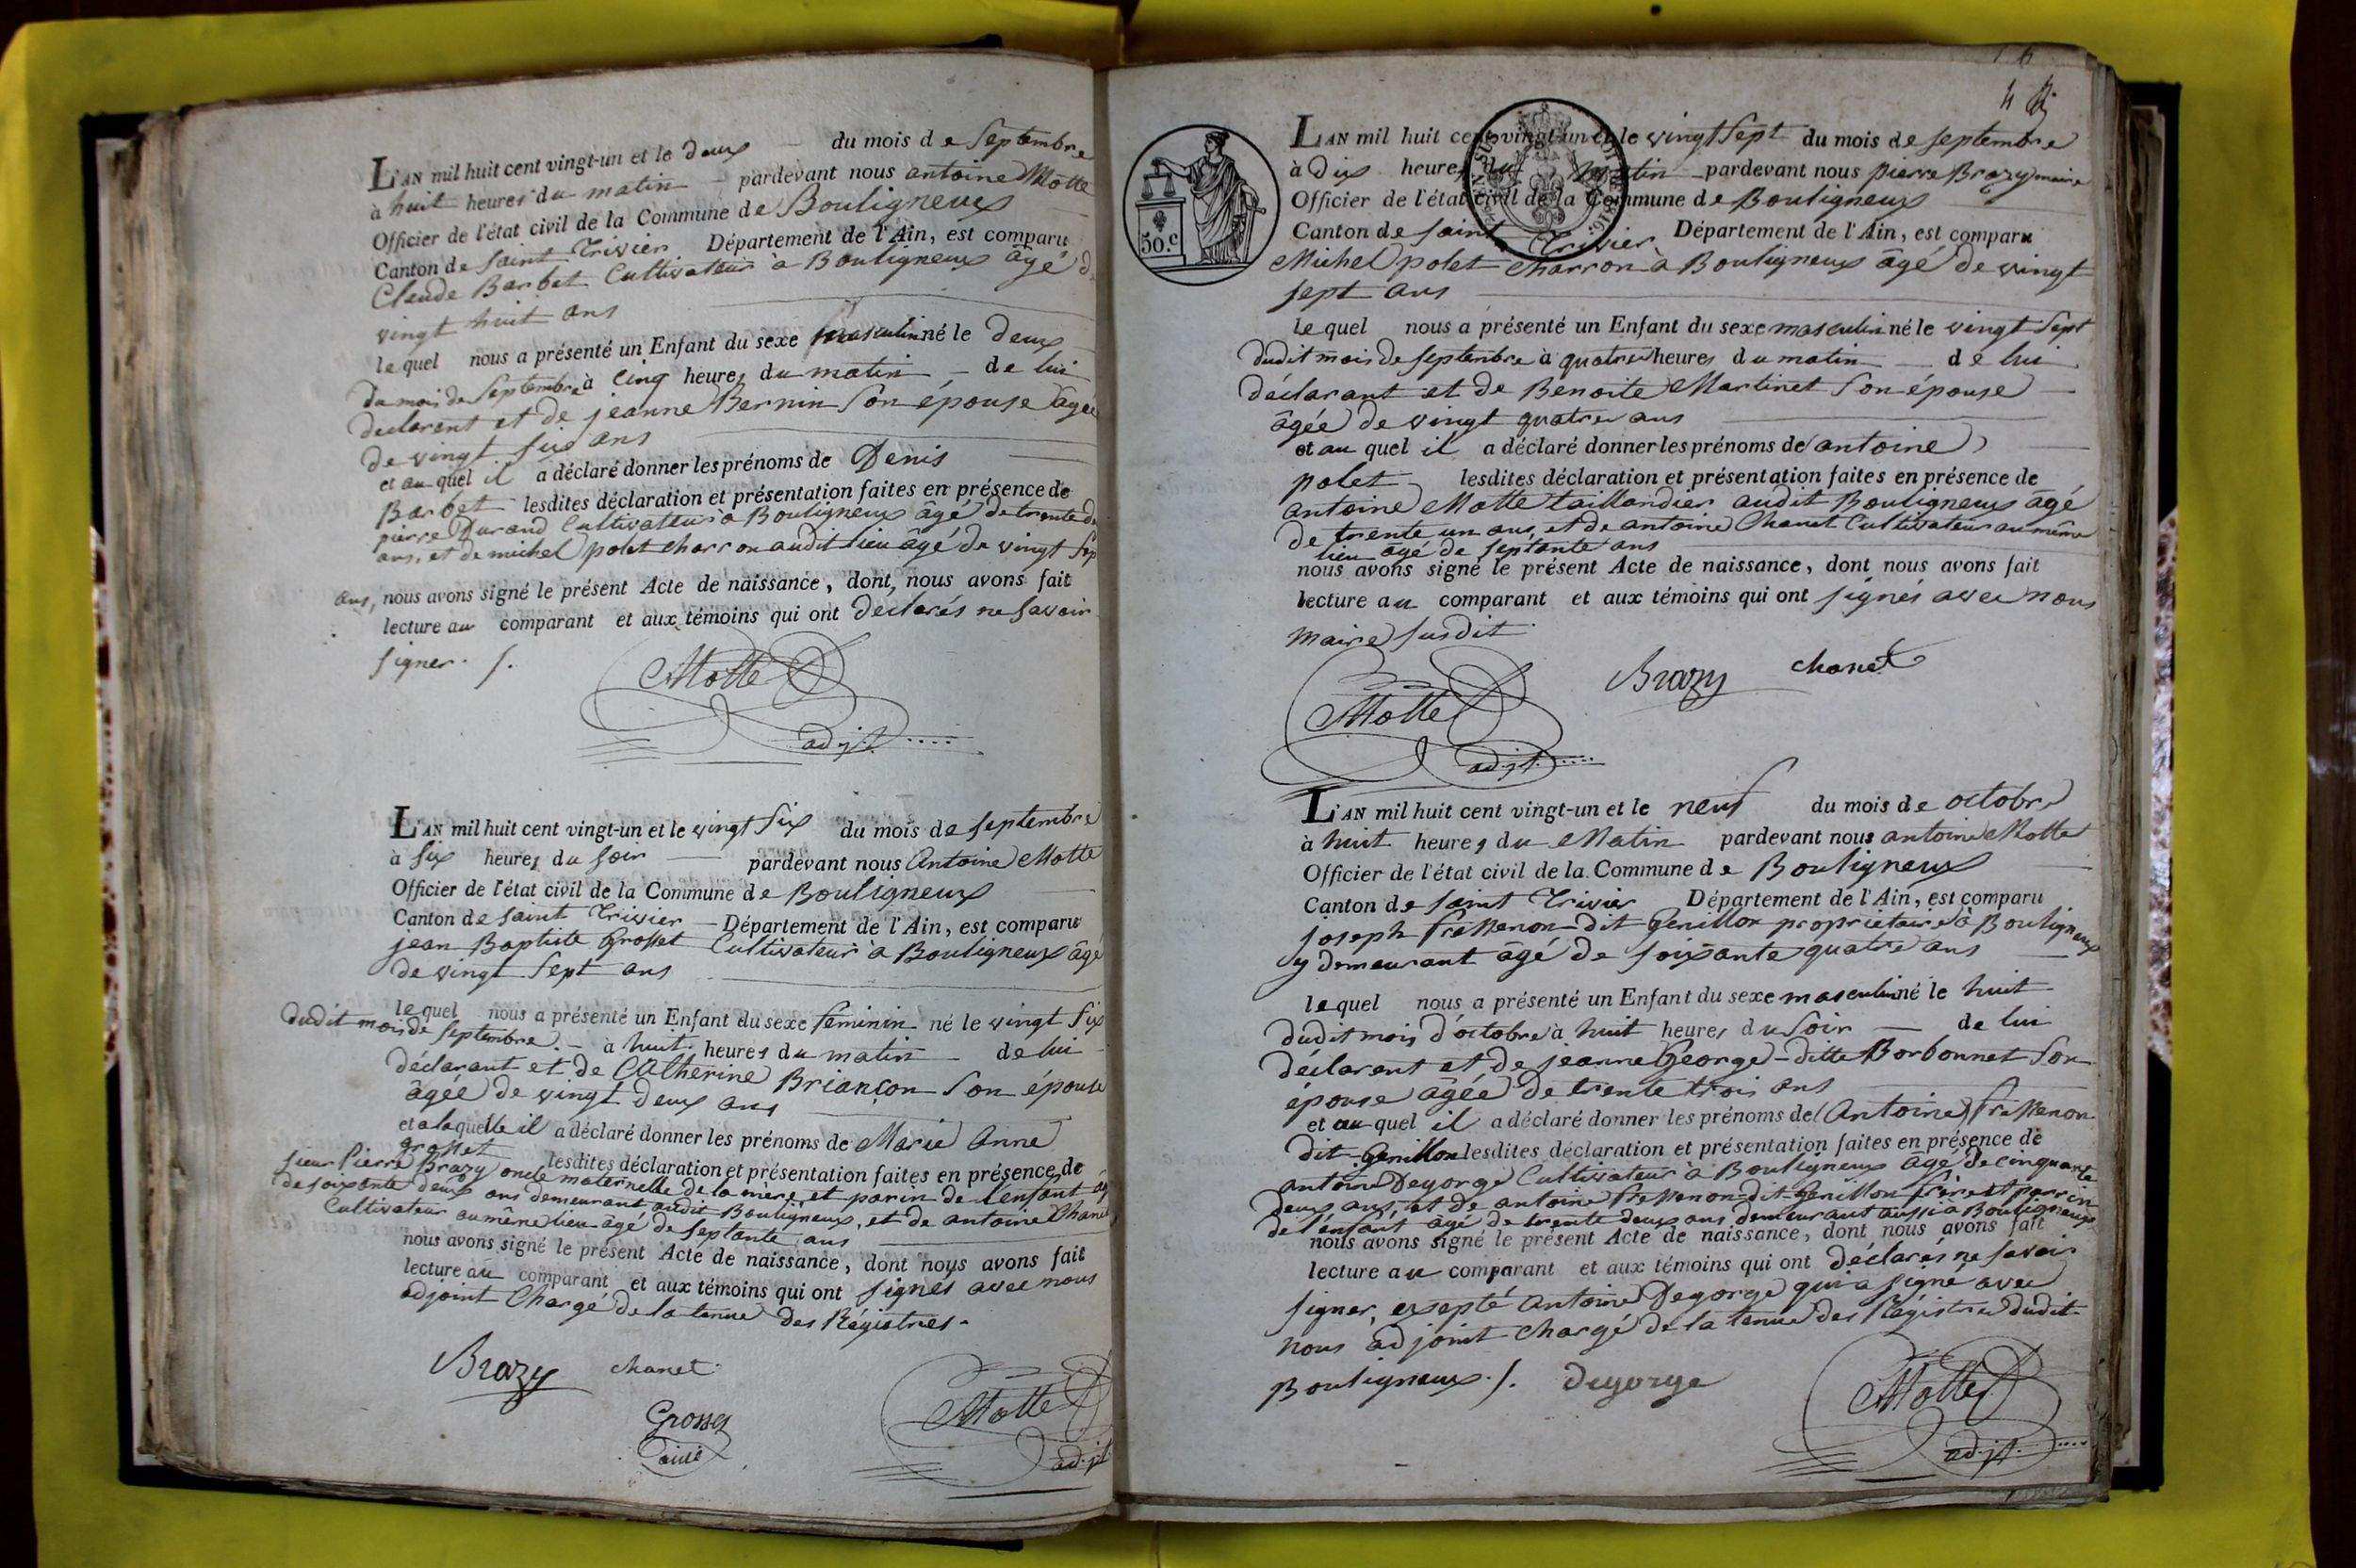 L'AN mil huit cent vingt-un et le deux du mois de Septembre
à huit heures du matin pardevant nous antoine Motte
Officier de l'état civil de la Commune de Bouligneux
Canton de Saint Trivier Département de l'Ain, est comparu
Claude Barbet Cultivateur à Bouligneux âgé de
vingt huit ans
lequel nous a présenté un Enfant du sexe masculin né le deux
du mois de Septembre à cinq heures du matin de lui
declarent et de jeanne Bernin Son épouse âgée
de vingt six ans
et au quel il a déclaré donner les prénoms de Denis
Barbet lesdites déclaration et présentation faites en présence de
pierre Durand Cultivateur à Bouligneux âgé de trente
ans, et de michel polet charron audit lieu âgé de vingt Sep
ans, nous avons signé le présent Acte de naissance, dont, nous avons fait
lecture au comparant et aux témoins qui ont declarés ne Savoir
signer. /.
Motte
adjt.
L'AN mil huit cent vingt-un et le vingt Six du mois de septembre
à Six heures du soir pardevant nous Antoine Motte
Officier de l'état civil de la Commune de Bouligneux
Canton de Saint Trivier Département de l'Ain, est comparu
jean Baptiste Grosset Cultivateur à Bouligneux âgé
de vingt Sept ans
lequel nous a présenté un Enfant du sexe féminin né le vingt Six
dudit mois de Septembre. à huit heures du matin de lui
déclarant et de Catherine Briançon Son épouse
âgée de vingt deux ans
et a laquelle il a déclaré donner les prénoms de Marie Anne
grosset lesdites déclaration et présentation faites en présence de
sieur Pierre Brazy oncle maternelle de la mère, et parin de l'enfant
de soixante deux ans demeurant audit Bouligneux, et de antoine Chanet
Cultivateur au même lieu âgé de septante ans
nous avons signé le présent Acte de naissance, dont nous avons fait
lecture au comparant et aux témoins qui ont signés avec nous
adjoint Chargé de la tenue des Régistres.
Brazy chanet
Grosset
Motte
adjt
4
50.c
L'AN mil huit cent vingt-un et le vingt Sept du mois de septembre
à Dix heures du matin pardevant nous pierre Brazy maire
Officier de l'état civil de la Commune de Bouligneux
Canton de saint Trivier Département de l'Ain, est comparu
Michel polet charron à Bouligneux âgé de vingt
sept ans
lequel nous a présenté un Enfant du sexe masculin né le vingt Sept
dudit mois de septembre à quatre heures du matin de lui
déclarant et de Benoite Martinet Son épouse
âgée de vingt quatre ans
et au quel il a déclaré donner les prénoms de antoine
polet lesdites déclaration et présentation faites en présence de
antoine Motte taillandier audit Bouligneux âgé
de trente un ans, et de antoine Chanet Cultivateur au même
lieu âgé de septante ans
nous avons signé le présent Acte de naissance, dont nous avons fait
lecture au comparant et aux témoins qui ont signés avec nous
maire susdit
Motte Brazy chanet
adjt.
L'AN mil huit cent vingt-un et le neuf du mois de octobre
à huit heures du Matin pardevant nous antoine Motte
Officier de l'état civil de la Commune de Bouligneux
Canton de Saint Trivier Département de l'Ain, est comparu
joseph dit Genillon propriétaire à Bouligneux
y demeurant âgé de soixante quatre ans
lequel nous a présenté un Enfant du sexe masculin né le huit
dudit mois d'octobre à huit heures du Soir de lui
déclarent et de jeanne George ditte Borbonnet Son
épouse âgée de trente trois ans
et au quel il a déclaré donner les prénoms de Antoine
dit Genillon lesdites déclaration et présentation faites en présence de
antoine Degorge Cultivateur à Bouligneux âgé de cinquante
deux ans, et de antoine dit Genillon frère et parrin
de l'enfant âgé de trente deux ans, demeurant aussi à Bouligneux
nous avons signé le présent Acte de naissance, dont nous avons fait
lecture au comparant et aux témoins qui ont déclarés ne savoir
signer, excepté antoine Degorge qui a signé avec
nous adjoint chargé de la tenue des Régistres dudit
Bouligneux. /. degorge
Motte
adjt.